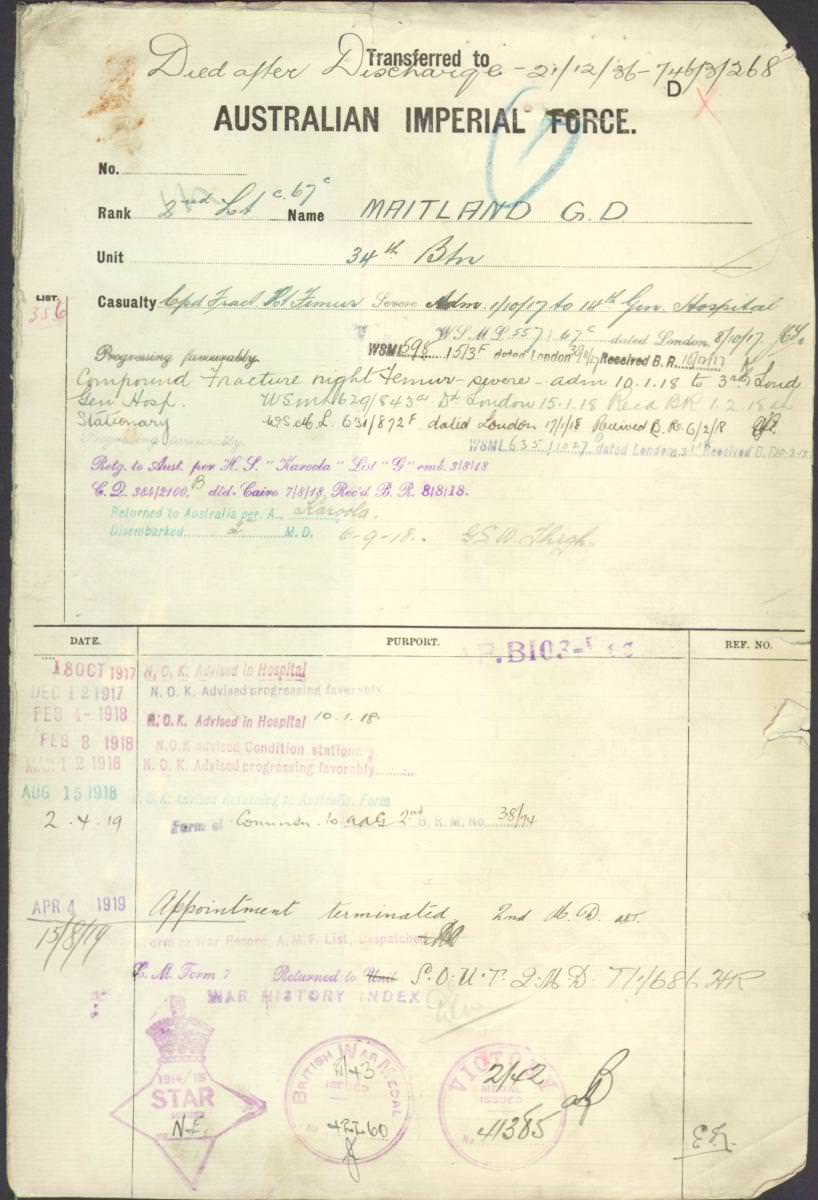 Transferred to
Died after Discharge - 21/12/36 - 746/3/268
D X
AUSTRALIAN IMPERIAL FORCE.
No.
Rank 2nd Lt c. 67c Name MAITLAND G.D.
Unit 34th Btn
LIST. 356
Casualty Cpd Fract Rt Femur Severe Adm. 1/10/17 to 14th Gen. Hospital
WSML 557/67c dated London 8/10/17
Progressing favourably. WSML 598 15/3F dated London Received B.R.
Compound Fracture right Femur - severe - adm 10.1.18 to 3rd Lond
Gen Hosp. WSML 629/843a Dt London 15.1.18 Recd BR 1.2.18
Stationary WSML. 631/872F dated London 17/1/18 Received B.R. 6/2/18
Progressing favourably. WSML 635/1027 dated London Received B.
Retg. to Aust. per H. S. "Karoola" List "G" emb. 3/8/18
C. D. 384/2100. B dtd. Cairo 7/8/18. Rec'd B. R. 8/8/18.
Returned to Australia per. A. Karoola.
Disembarked 2nd M.D. 6-9-18. GSW. Thigh.
DATE. PURPORT. REF. NO.
.B103-
18 OCT 1917 N. O. K. Advised in Hospital
DEC 12 1917 N. O. K. Advised progressing favorably
FEB 4- 1918 N. O. K. Advised in Hospital 10.1.18.
FEB 8 1918 N.O.K advised Condition stationary.
MAR 12 1918 N. O. K. Advised progressing favorably
AUG 15 1918 N. O. K. Advised Returning to Australia. Form
2.4.19 Form of Commun. to AAG 2nd B. R. M. No. 38/74
APR 4 1919 Appointment terminated 2nd M.D.
15/8/19 Form of War Record, A. M. F. List, Despatched
C. M. Form 7 Returned to Unit S.O.U.T. 2.M.D.
WAR HISTORY INDEX
1914/15
STAR
N.E.
BRITISH WAR MEDAL
ISSUED
No 42260
VICTORY
2/42
MEDAL
ISSUED
No. 41385